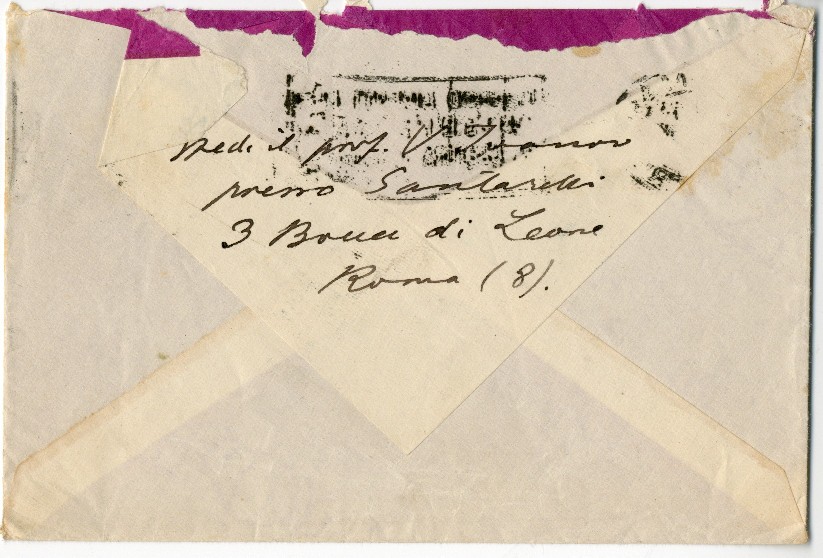 sped. il prof. V. Ivanov
presso Santarelli
3 Bocca di Leone
Roma (8).